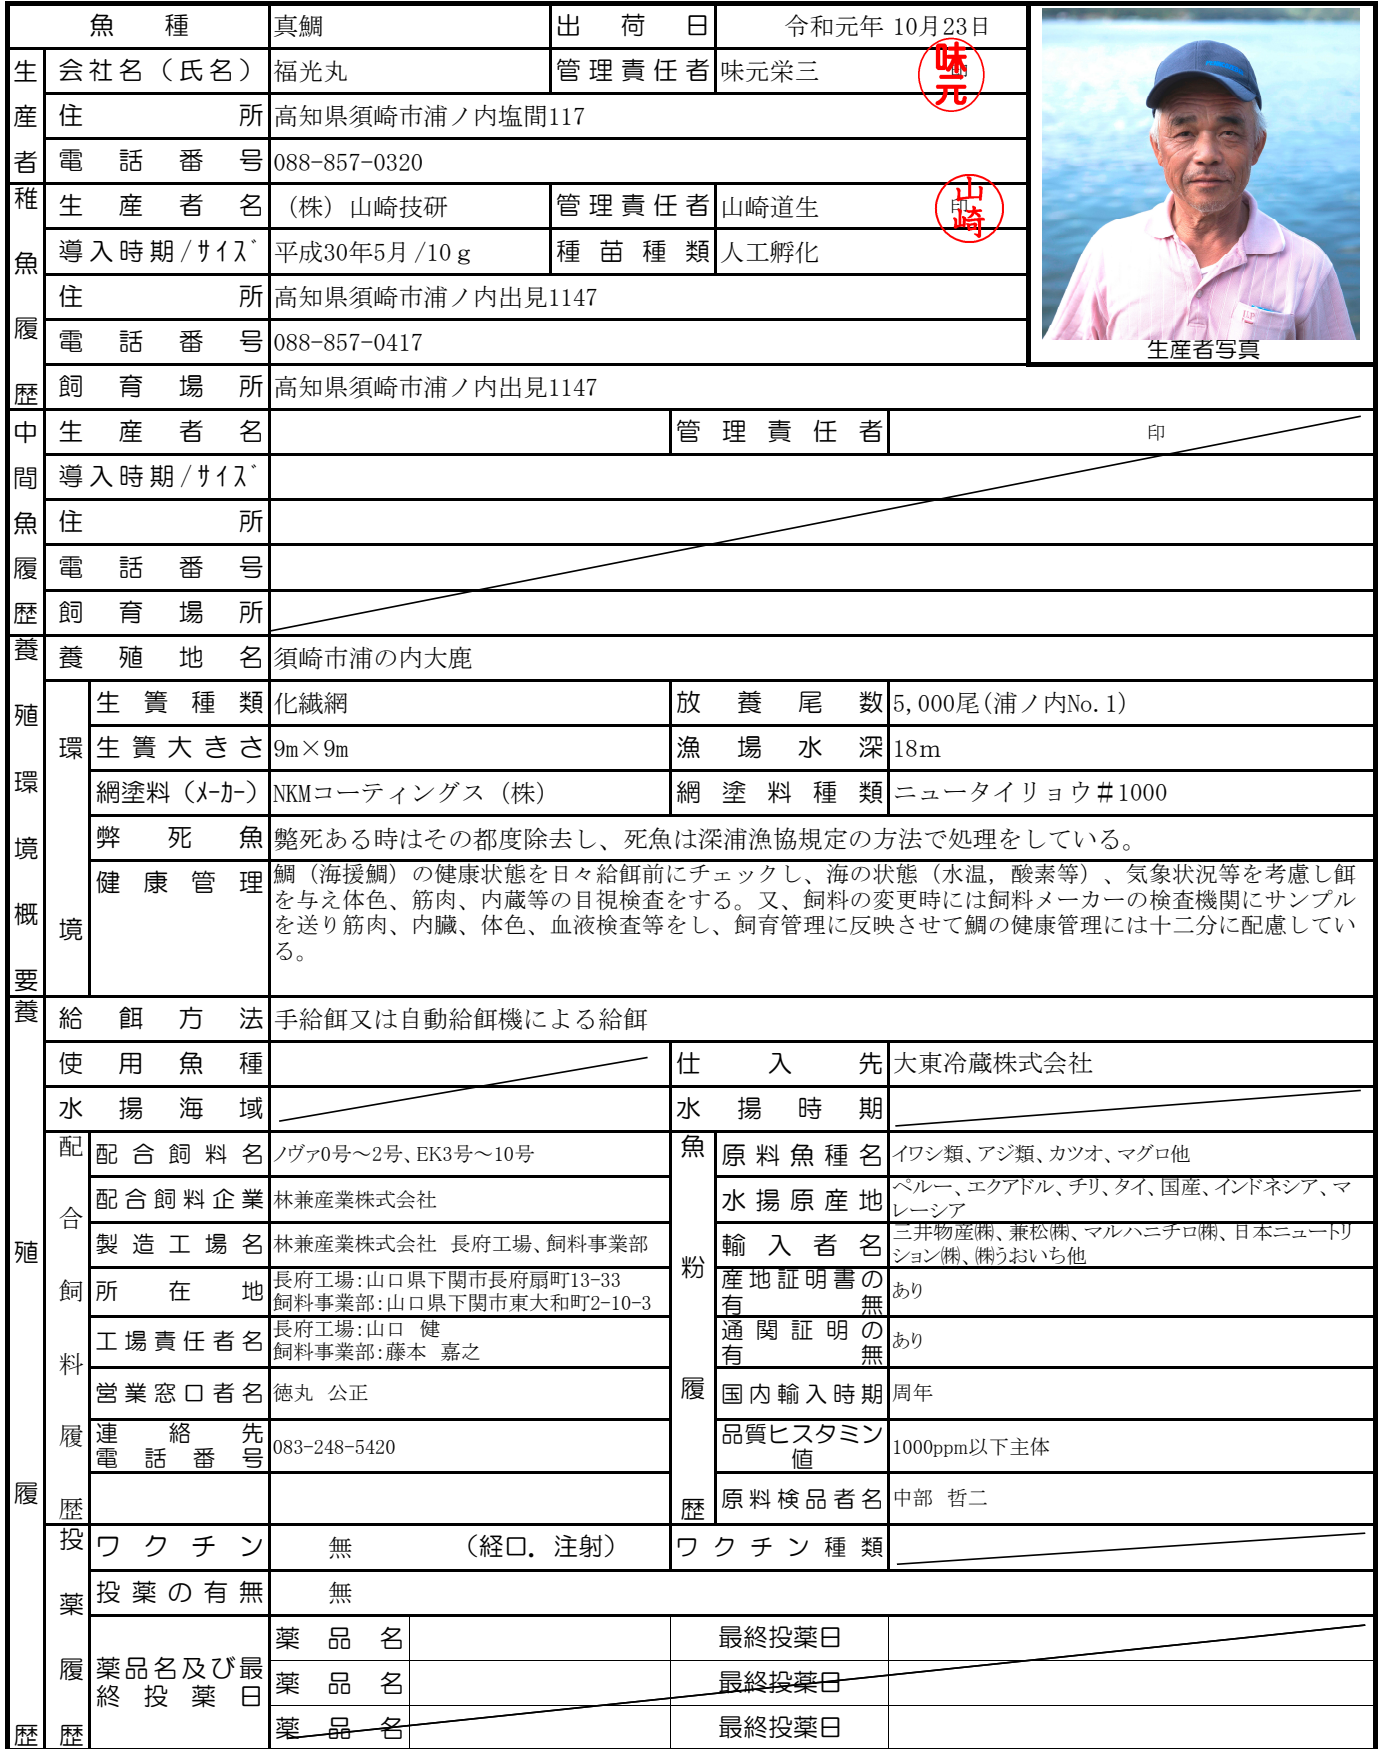 魚種 真鯛 出荷日 令和元年 10月23日
生産者
会社名（氏名） 福光丸 管理責任者 味元栄三 印 味元
住所 高知県須崎市浦ノ内塩間117
電話番号 088-857-0320
生産者写真
稚魚履歴
生産者名 （株）山崎技研 管理責任者 山崎道生 印 山崎
導入時期/ｻｲｽﾞ 平成30年5月/10ｇ 種苗種類 人工孵化
住所 高知県須崎市浦ノ内出見1147
電話番号 088-857-0417
飼育場所 高知県須崎市浦ノ内出見1147
中間魚履歴
生産者名 管理責任者 印
導入時期/ｻｲｽﾞ
住所
電話番号
飼育場所
養殖環境概要
養殖地名 須崎市浦の内大鹿
環境
生簀種類 化繊網 放養尾数 5,000尾(浦ノ内No.1)
生簀大きさ 9m×9m 漁場水深 18ｍ
網塗料（ﾒｰｶｰ） NKMコーティングス（株） 網塗料種類 ニュータイリョウ＃1000
弊死魚 斃死ある時はその都度除去し、死魚は深浦漁協規定の方法で処理をしている。
健康管理 鯛（海援鯛）の健康状態を日々給餌前にチェックし、海の状態（水温，酸素等）、気象状況等を考慮し餌
を与え体色、筋肉、内蔵等の目視検査をする。又、飼料の変更時には飼料メーカーの検査機関にサンプル
を送り筋肉、内臓、体色、血液検査等をし、飼育管理に反映させて鯛の健康管理には十二分に配慮してい
る。
養殖履歴
給餌方法 手給餌又は自動給餌機による給餌
使用魚種 仕入先 大東冷蔵株式会社
水揚海域 水揚時期
配合飼料履歴
配合飼料名 ノヴァ0号～2号、EK3号～10号
配合飼料企業 林兼産業株式会社
製造工場名 林兼産業株式会社 長府工場、飼料事業部
所在地 長府工場：山口県下関市長府扇町13-33
飼料事業部：山口県下関市東大和町2-10-3
工場責任者名 長府工場：山口 健
飼料事業部：藤本 嘉之
営業窓口者名 徳丸 公正
連絡先
電話番号 083-248-5420
魚粉履歴
原料魚種名 イワシ類、アジ類、カツオ、マグロ他
水揚原産地 ペルー、エクアドル、チリ、タイ、国産、インドネシア、マ
レーシア
輸入者名 三井物産㈱、兼松㈱、マルハニチロ㈱、日本ニュートリ
ション㈱、㈱うおいち他
産地証明書の
有無 あり
通関証明の
有無 あり
国内輸入時期 周年
品質ヒスタミン
値 1000ppm以下主体
原料検品者名 中部 哲二
投薬履歴
ワクチン 無 （経口．注射） ワクチン種類
投薬の有無 無
薬品名及び最
終投薬日
薬品名 最終投薬日
薬品名 最終投薬日
薬品名 最終投薬日